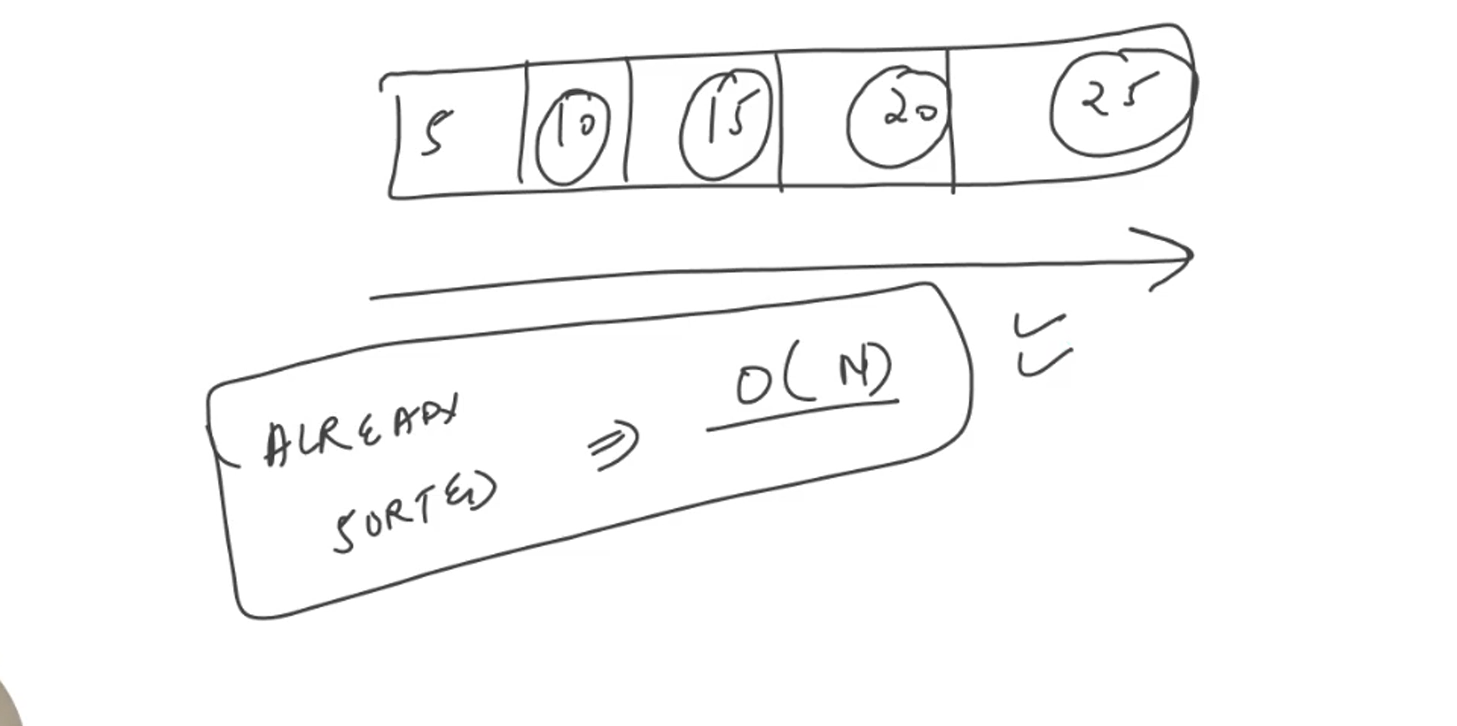 5 10 15 20 25
ALREADY
SORTED ⇒ O(N)